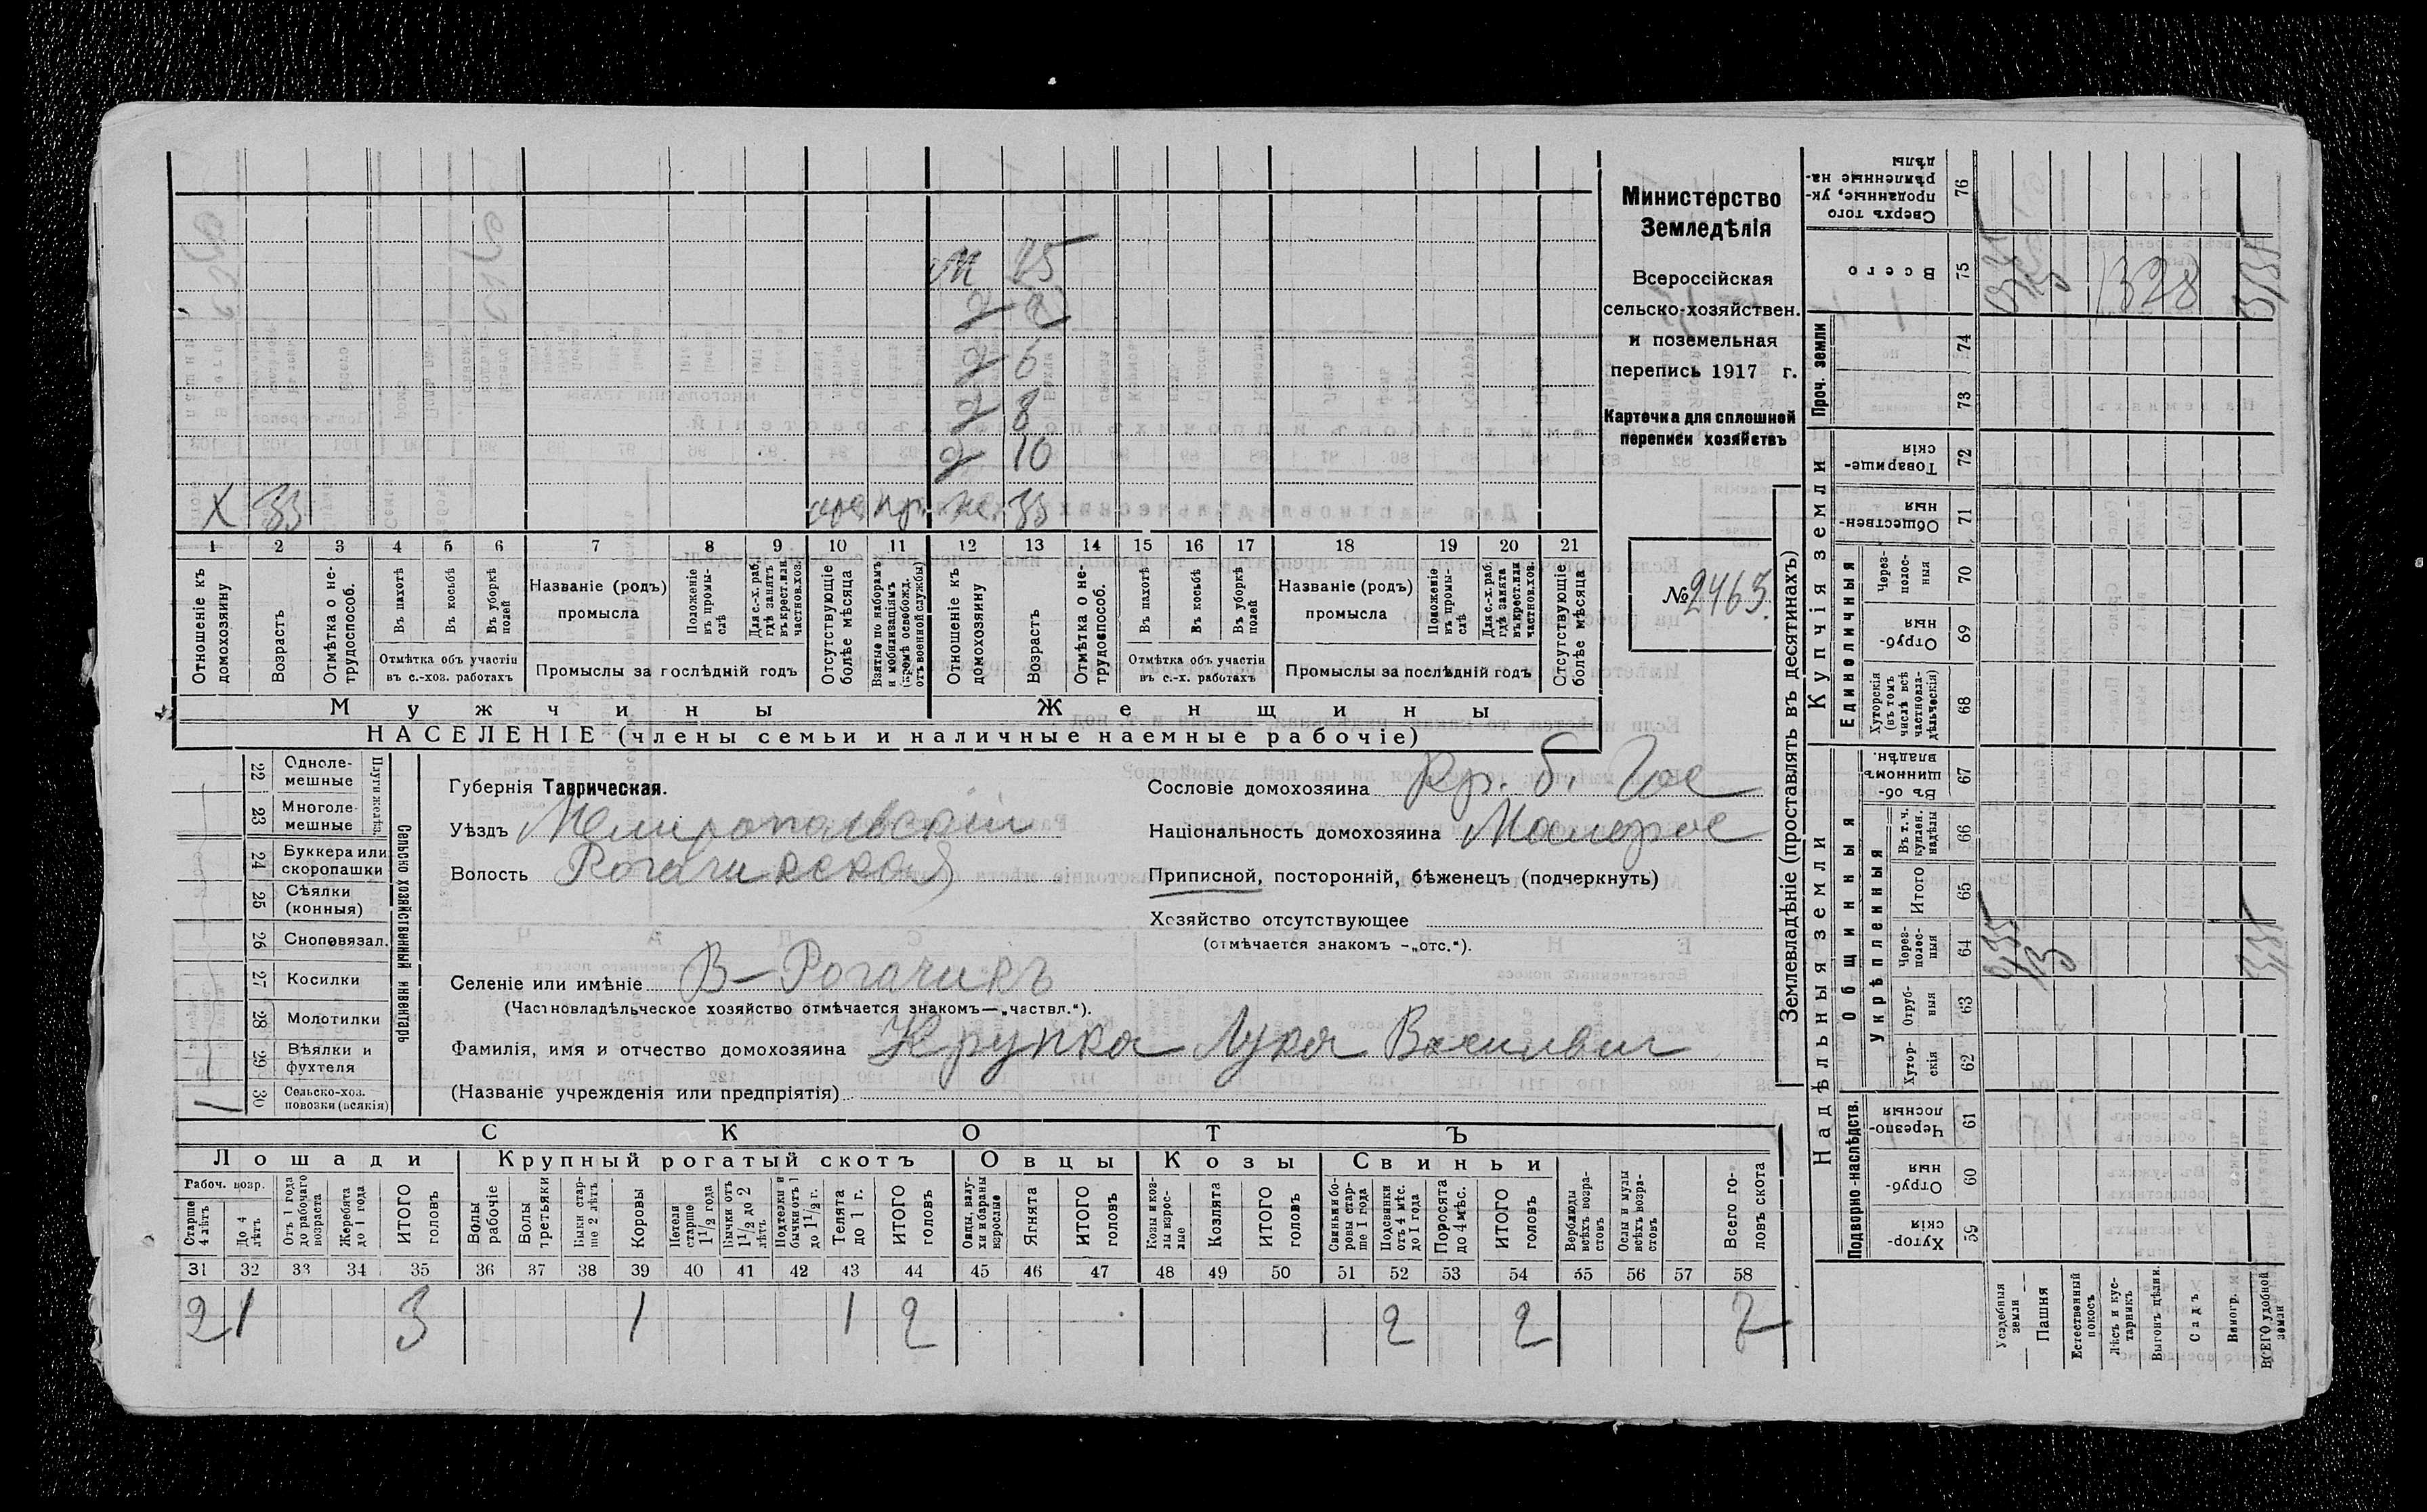 Министерство
Земледѣлія
Всероссійская
сельско-хозяйствен.
и поземельная
перепись 1917 г.
Карточка для сплошной
переписи хозяйствъ
№ 2463
м 75
д 2
д 6
д 8
д 10
Х 33 ж. 33
1 2 3 4 5 6 7 8 9 10 11 12 13 14 15 16 17 18 19 20 21
Отношеніе къ домохозяину
Возрастъ
Отмѣтка о не-трудоспособ.
Въ пахотѣ
Въ косьбѣ
Въ уборкѣ полей
Отмѣтка объ участіи въ с.-хоз. работахъ
Названіе (родъ) промысла
Положеніе въ промы-слѣ
Для с.-х. раб. гдѣ занятъ въ крест. или частнов. хоз.
Промыслы за послѣдній годъ
Отсутствующіе болѣе мѣсяца
Взятые по наборамъ и мобилизаціямъ (кромѣ освобожд. отъ военной службы)
Отношеніе къ домохозяину
Возрастъ
Отмѣтка о не-трудоспособ.
Въ пахотѣ
Въ косьбѣ
Въ уборкѣ полей
Отмѣтка объ участіи въ с.-х. работахъ
Названіе (родъ) промысла
Положеніе въ промы-слѣ
Для с.-х. раб. гдѣ занята въ крест. или частнов. хоз.
Промыслы за послѣдній годъ
Отсутствующіе болѣе мѣсяца
Мужчины Женщины
НАСЕЛЕНІЕ (члены семьи и наличные наемные рабочіе)
Сельско хозяйственный инвентарь
Плуги желѣз.
22 Одноле-мешные
23 Многоле-мешные
24 Буккера или скоропашки
25 Сѣялки (конныя)
26 Сноповязал.
27 Косилки
28 Молотилки
29 Вѣялки и фухтеля
30 Сельско-хоз. повозки (всякія) 1
Губернія Таврическая.
Уѣздъ Мелитопольскій
Волость Рогачикская
Селеніе или имѣніе В-Рогачикъ
(Частновладѣльческое хозяйство отмѣчается знакомъ—„частвл.“).
Фамилія, имя и отчество домохозяина Крупка Лука Васильвич
(Названіе учрежденія или предпріятія)
Сословіе домохозяина Кр. б. Гос
Національность домохозяина Малорос
Приписной, посторонній, бѣженецъ (подчеркнуть)
Хозяйство отсутствующее
(отмѣчается знакомъ -„отс.“).
СКОТЪ
Лошади Крупный рогатый скотъ Овцы Козы Свиньи
Рабоч. возр.
Старше 4 лѣтъ
До 4 лѣтъ
Отъ 1 года до рабочаго возраста
Жеребята до 1 года
ИТОГО головъ
Волы рабочіе
Волы третьяки
Быки стар-ше 2 лѣтъ
Коровы
Нетели старше 1 1/2 года
Бычки отъ 1 1/2 до 2 лѣтъ
Подтелки и бычки отъ 1 до 1 1/2 г.
Телята до 1 г.
ИТОГО головъ
Овцы, валу-хи и бараны взрослые
Ягнята
ИТОГО головъ
Козы и коз-лы взрос-лые
Козлята
ИТОГО головъ
Свиньи и бо-ровы стар-ше 1 года
Подсвинки отъ 4 мѣс. до 1 года
Поросята до 4 мѣс.
ИТОГО головъ
Верблюды всѣхъ возра-стовъ
Ослы и мулы всѣхъ возра-стовъ
Всего го-ловъ скота
31 32 33 34 35 36 37 38 39 40 41 42 43 44 45 46 47 48 49 50 51 52 53 54 55 56 57 58
2 1 3 1 1 2 2 2 7
Землевладѣніе (проставлять въ десятинахъ)
Надѣльныя земли
Купчія земли
Проч. земли
Подворно-наслѣдств.
Общинныя
Укрѣпленныя
Единоличныя
59 Хутор-скія
60 Отруб-ныя
61 Черезпо-лосныя
62 Хутор-скія
63 Отруб-ныя
64 Через-полос-ныя
65 Итого
66 Въ т. ч. куплен. надѣлы
67 Въ об-щинномъ владѣн.
68 Хуторскія (въ томъ числѣ всѣ частновла-дѣльческія)
69 Отруб-ныя
70 Через-полос-ныя
71 Обществен-ныя
72 Товарище-скія
73
74
75 Всего 1328
76 Сверхъ того проданные, ук-рѣпленные на-дѣлы
Усадебныя земли
Пашня
Естественный покосъ
Лѣсъ и кус-тарникъ
Выгонъ цѣлин.
Садъ
Виногр.
ВСЕГО удобной земли